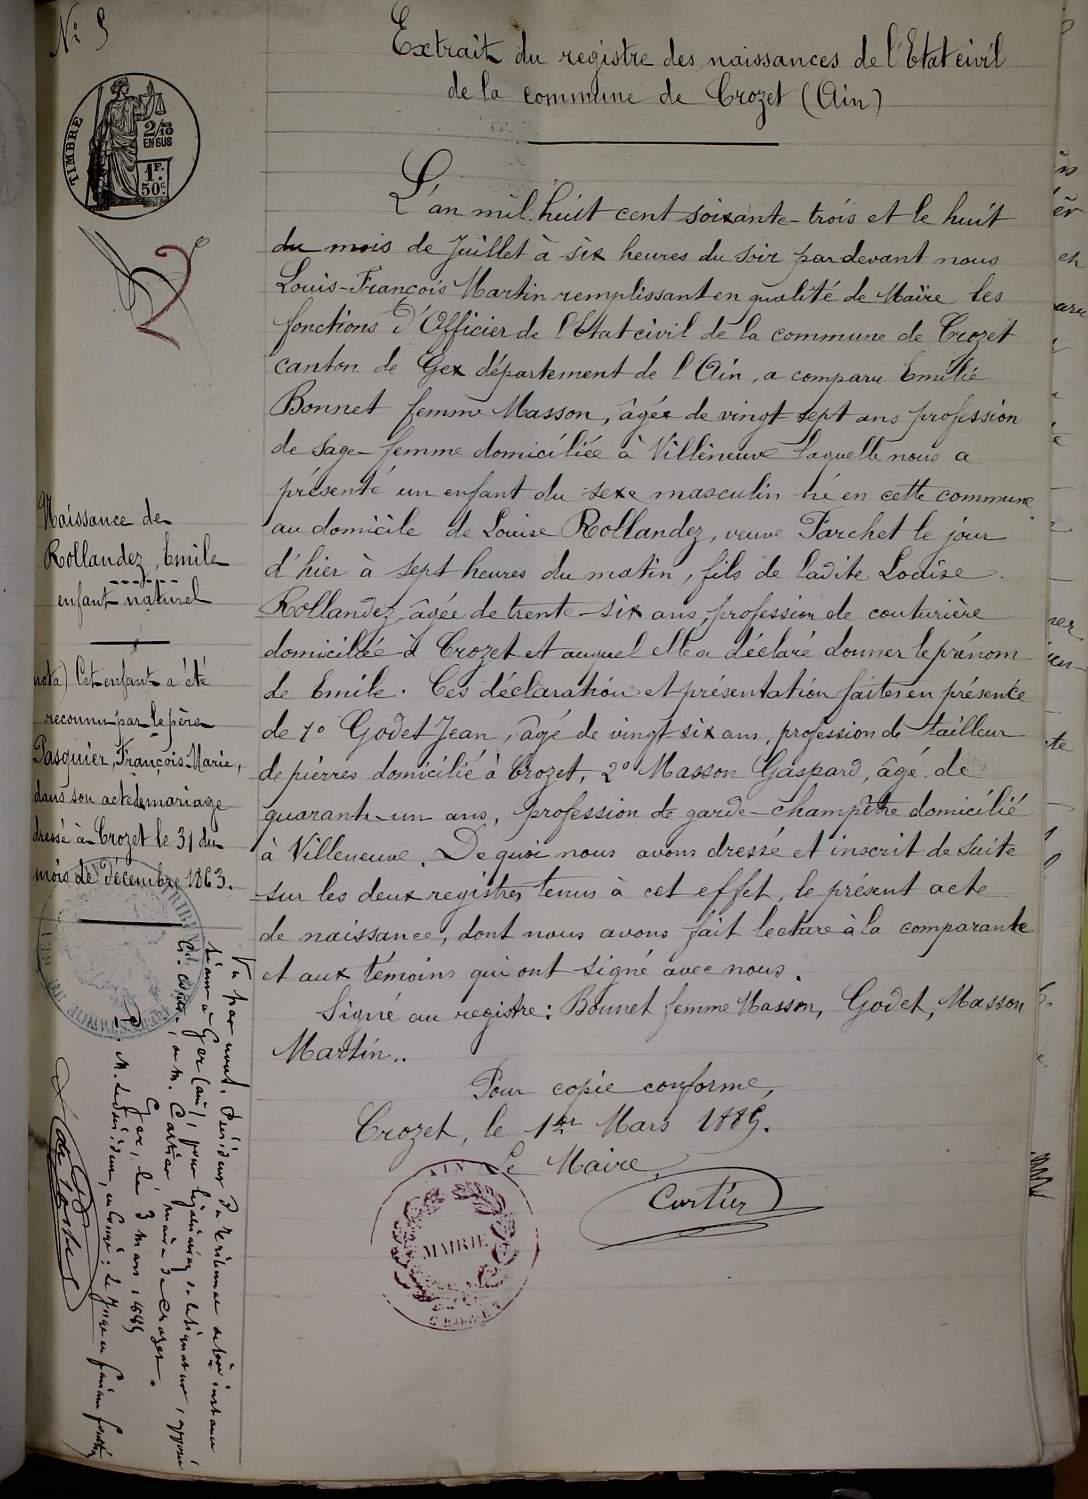 N° 5
Extrait du registre des naissances de l'Etat civil
de la commune de Crozet (Ain)
TIMBRE
2/10
EN SUS
1F.
50c
L'an mil huit cent soixante-trois et le huit
du mois de Juillet à six heures du soir par devant nous
Louis-François Martin remplissant en qualité de Maire les
fonctions d'Officier de l'Etat civil de la commune de Crozet
canton de Gex département de l'Ain, a comparu Emilie
Bonnet femme Masson, âgée de vingt sept ans profession
de sage-femme domiciliée à Villeneuve laquelle nous a
présenté un enfant du sexe masculin né en cette commune
au domicile de Louise Rollandez, veuve Farchet le jour
d'hier à sept heures du matin, fils de ladite Louise
Rollandez, âgée de trente-six ans, profession de couturière
domiciliée à Crozet et auquel elle a déclaré donner le prénom
de Emile. Ces déclaration et présentation faites en présence
de 1° Godet Jean, âgé de vingt six ans, profession de tailleur
de pierres domicilié à Crozet, 2° Masson Gaspard, âgé de
quarante-un ans, profession de garde-champêtre domicilié
à Villeneuve. De quoi nous avons dressé et inscrit de suite
sur les deux registres tenus à cet effet, le présent acte
de naissance, dont nous avons fait lecture à la comparante
et aux témoins qui ont signé avec nous.
Signé au registre: Bonnet femme Masson, Godet, Masson
Martin..
Pour copie conforme,
Crozet, le 1er Mars 1889.
Le Maire,
Cartier
AIN
MAIRIE
CROZET
Naissance de
Rollandez, Emile
enfant naturel
nota) Cet enfant a été
reconnu par le père
Pasquier, François-Marie,
dans son acte de mariage
dressé à Crozet le 31 du
mois de Décembre 1863.
Vu par nous, Président du Tribunal de 1ère instance
séant à Gex (Ain), pour légalisation de la signature, apposée
ci-contre, de M. Cartier maire de Crozet.
Gex, le 3 mars 1889
P. M. le Président, en congé, le Juge en faisant fonctions